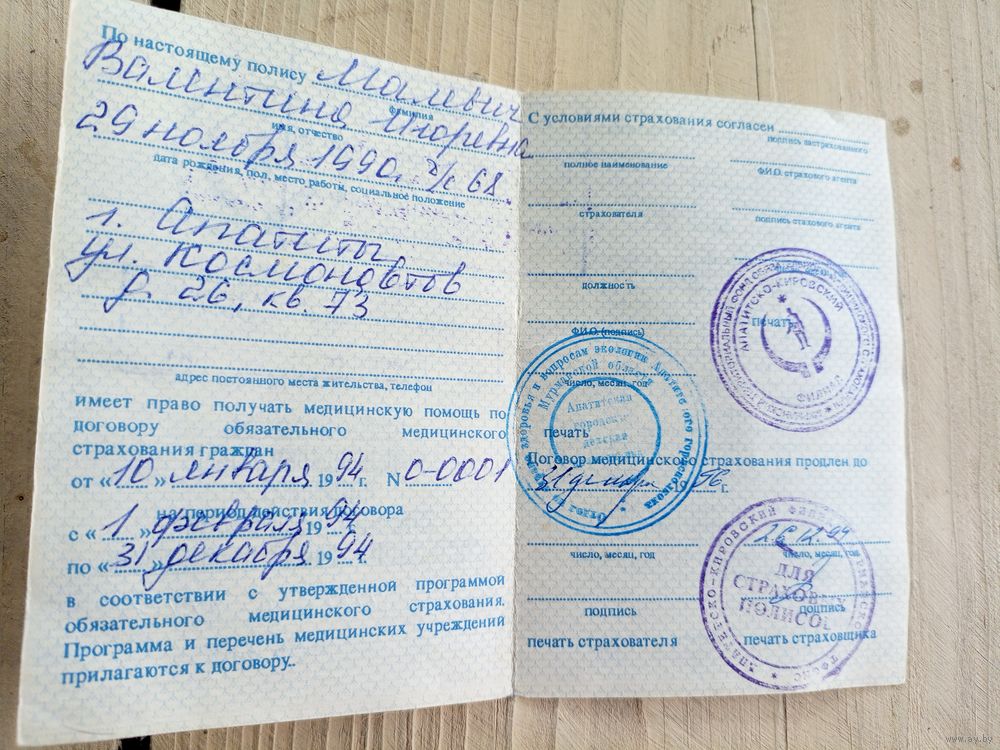 По настоящему полису Малевич
фамилия
Валентина Игоревна
имя, отчество
29 ноября 1990г
дата рождения, пол, место работы, социальное положение
г. Апатиты
ул. Космонавтов
д. 26, кв. 73
адрес постоянного места жительства, телефон
имеет право получать медицинскую помощь по
договору обязательного медицинского
страхования граждан
от «10» января 1994г. N 0-0001
на период действия договора
с «1» февраля 1994
по «31» декабря 1994
в соответствии с утвержденной программой
обязательного медицинского страхования.
Программа и перечень медицинских учреждений
прилагаются к договору..
С условиями страхования согласен
подпись застрахованного
полное наименование
Ф.И.О. страхового агента
страхователя
подпись стахового агента
должность
Ф.И.О. (подпись)
печать
АПАТИТСКО-КИРОВСКИЙ
ФИЛИАЛ
число, месяц, год
Мурманской области
Апатитская
городская
детская
печать
Договор медицинского страхования продлен до
31 декабря 1996г.
26.12.94
число, месяц, год
число, месяц, год
ДЛЯ
СТРАХОВ
ПОЛИСОВ
подпись
подпись
печать страхователя
печать страховщика
www.ay.by